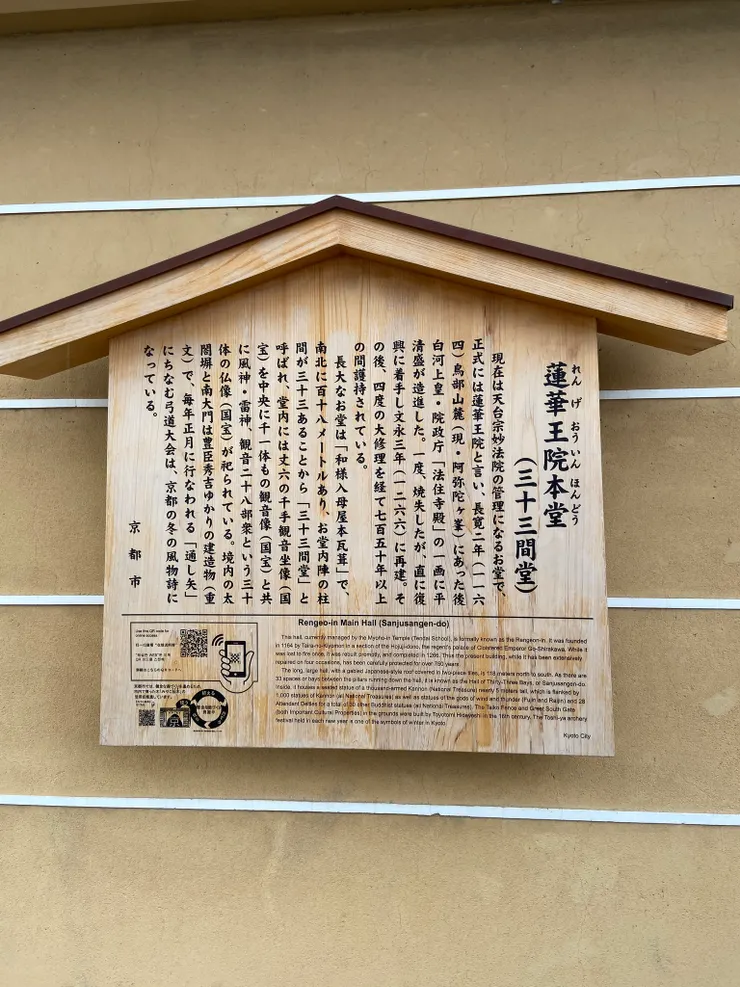 れんげおういんほんどう
蓮華王院本堂
（三十三間堂）
現在は天台宗妙法院の管理になるお堂で、
正式には蓮華王院と言い、長寛二年（一一六
四）鳥部山麓（現・阿弥陀ヶ峯）にあった後
白河上皇・院政庁「法住寺殿」の一画に平
清盛が造進した。一度、焼失したが、直に復
興に着手し文永三年（一二六六）に再建。そ
の後、四度の大修理を経て七百五十年以上
の間護持されている。
長大なお堂は「和様入母屋本瓦葺」で、
南北に百十八メートルあり、お堂内陣の柱
間が三十三あることから「三十三間堂」と
呼ばれ、堂内には丈六の千手観音坐像（国
宝）を中央に千一体もの観音像（国宝）と共
に風神・雷神、観音二十八部衆という三十
体の仏像（国宝）が祀られている。境内の太
閤塀と南大門は豊臣秀吉ゆかりの建造物（重
文）で、毎年正月に行なわれる「通し矢」
にちなむ弓道大会は、京都の冬の風物詩に
なっている。
京都市
Rengeo-in Main Hall (Sanjusangen-do)
This hall, currently managed by the Myoho-in Temple (Tendai School), is formally known as the Rengeon-in. It was founded
in 1164 by Taira-no-Kiyomori in a section of the Hojuji-dono, the regent's palace of Cloistered Emperor Go-Shirakawa. While it
was lost to fire once, it was rebuilt promptly, and completed in 1266. Thus the present building, while it has been extensively
repaired on four occasions, has been carefully protected for over 750 years.
The long, large hall, with a gabled Japanese-style roof covered in two-piece tiles, is 118 meters north to south. As there are
33 spaces or bays between the pillars running down the hall, it is known as the Hall of Thirty-Three Bays, or Sanjusangen-do.
Inside, it houses a seated statue of a thousand-armed Kannon (National Treasure) nearly 5 meters tall, which is flanked by
1,000 statues of Kannon (all National Treasures) as well as statues of the gods of wind and thunder (Fujin and Raijin) and 28
Attendant Deities for a total of 30 other Buddhist statues (all National Treasures). The Taiko Fence and Great South Gate
(both Important Cultural Properties) in the grounds were built by Toyotomi Hideyoshi in the 16th century. The Toshi-ya archery
festival held in each new year is one of the symbols of winter in Kyoto.
Kyoto City
Use the QR code for